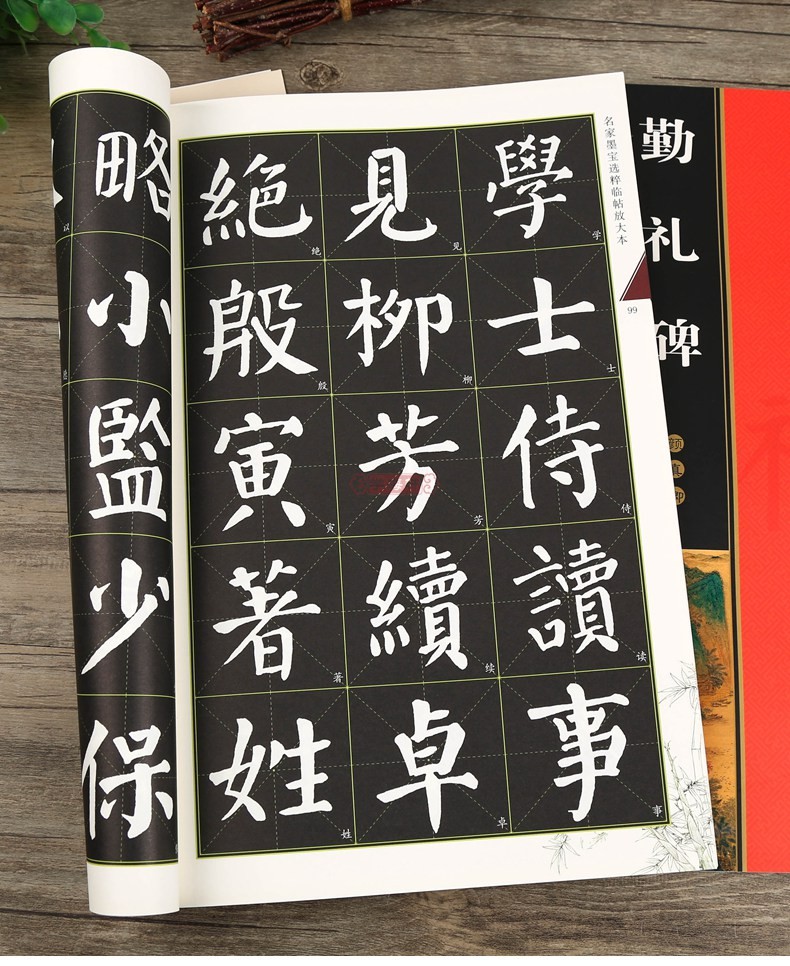 勤礼碑
颜真卿
名家墨宝选粹临帖放大本
99
學士侍讀事
学
士
侍
读
事
見柳芳續卓
见
柳
芳
续
卓
絶殷寅著姓
绝
殷
寅
著
姓
略小監少保
以